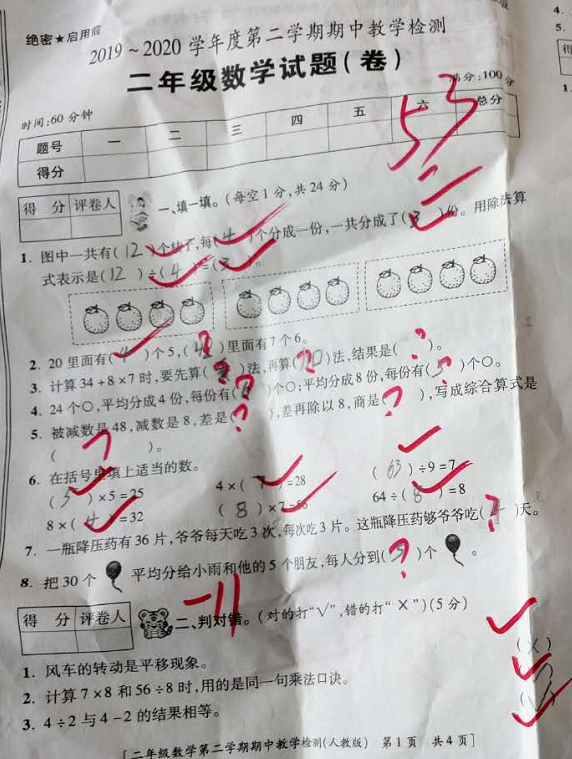 绝密★启用前
2019~2020学年度第二学期期中教学检测
二年级数学试题(卷)
时间:60分钟 满分:100分
题号 一 二 三 四 五 六 总分
得分
53
得 分 评卷人
一、填一填。(每空1分,共24分)
1. 图中一共有(12)个桔子,每(4)个分成一份,一共分成了(3)份。用除法算
式表示是(12)÷(4)=(3)。
2. 20里面有(4)个5,( )里面有7个6。
3. 计算34+8×7时,要先算( )法,再算( )法,结果是( )。
4. 24个○,平均分成4份,每份有( )个○;平均分成8份,每份有( )个○。
5. 被减数是48,减数是8,差是( ),差再除以8,商是( ),写成综合算式是
( )。
6. 在括号里填上适当的数。
(5)×5=25 4×( )=28 (63)÷9=7
8×(4)=32 (8)×7=56 64÷(8)=8
7. 一瓶降压药有36片,爷爷每天吃3次,每次吃3片。这瓶降压药够爷爷吃( )天。
8. 把30个 平均分给小雨和他的5个朋友,每人分到( )个 。
-11
得 分 评卷人
二、判对错。(对的打“√”,错的打“×”)(5分)
1. 风车的转动是平移现象。 (×)
2. 计算7×8和56÷8时,用的是同一句乘法口诀。
3. 4÷2与4-2的结果相等。
[二年级数学第二学期期中教学检测(人教版) 第1页 共4页]